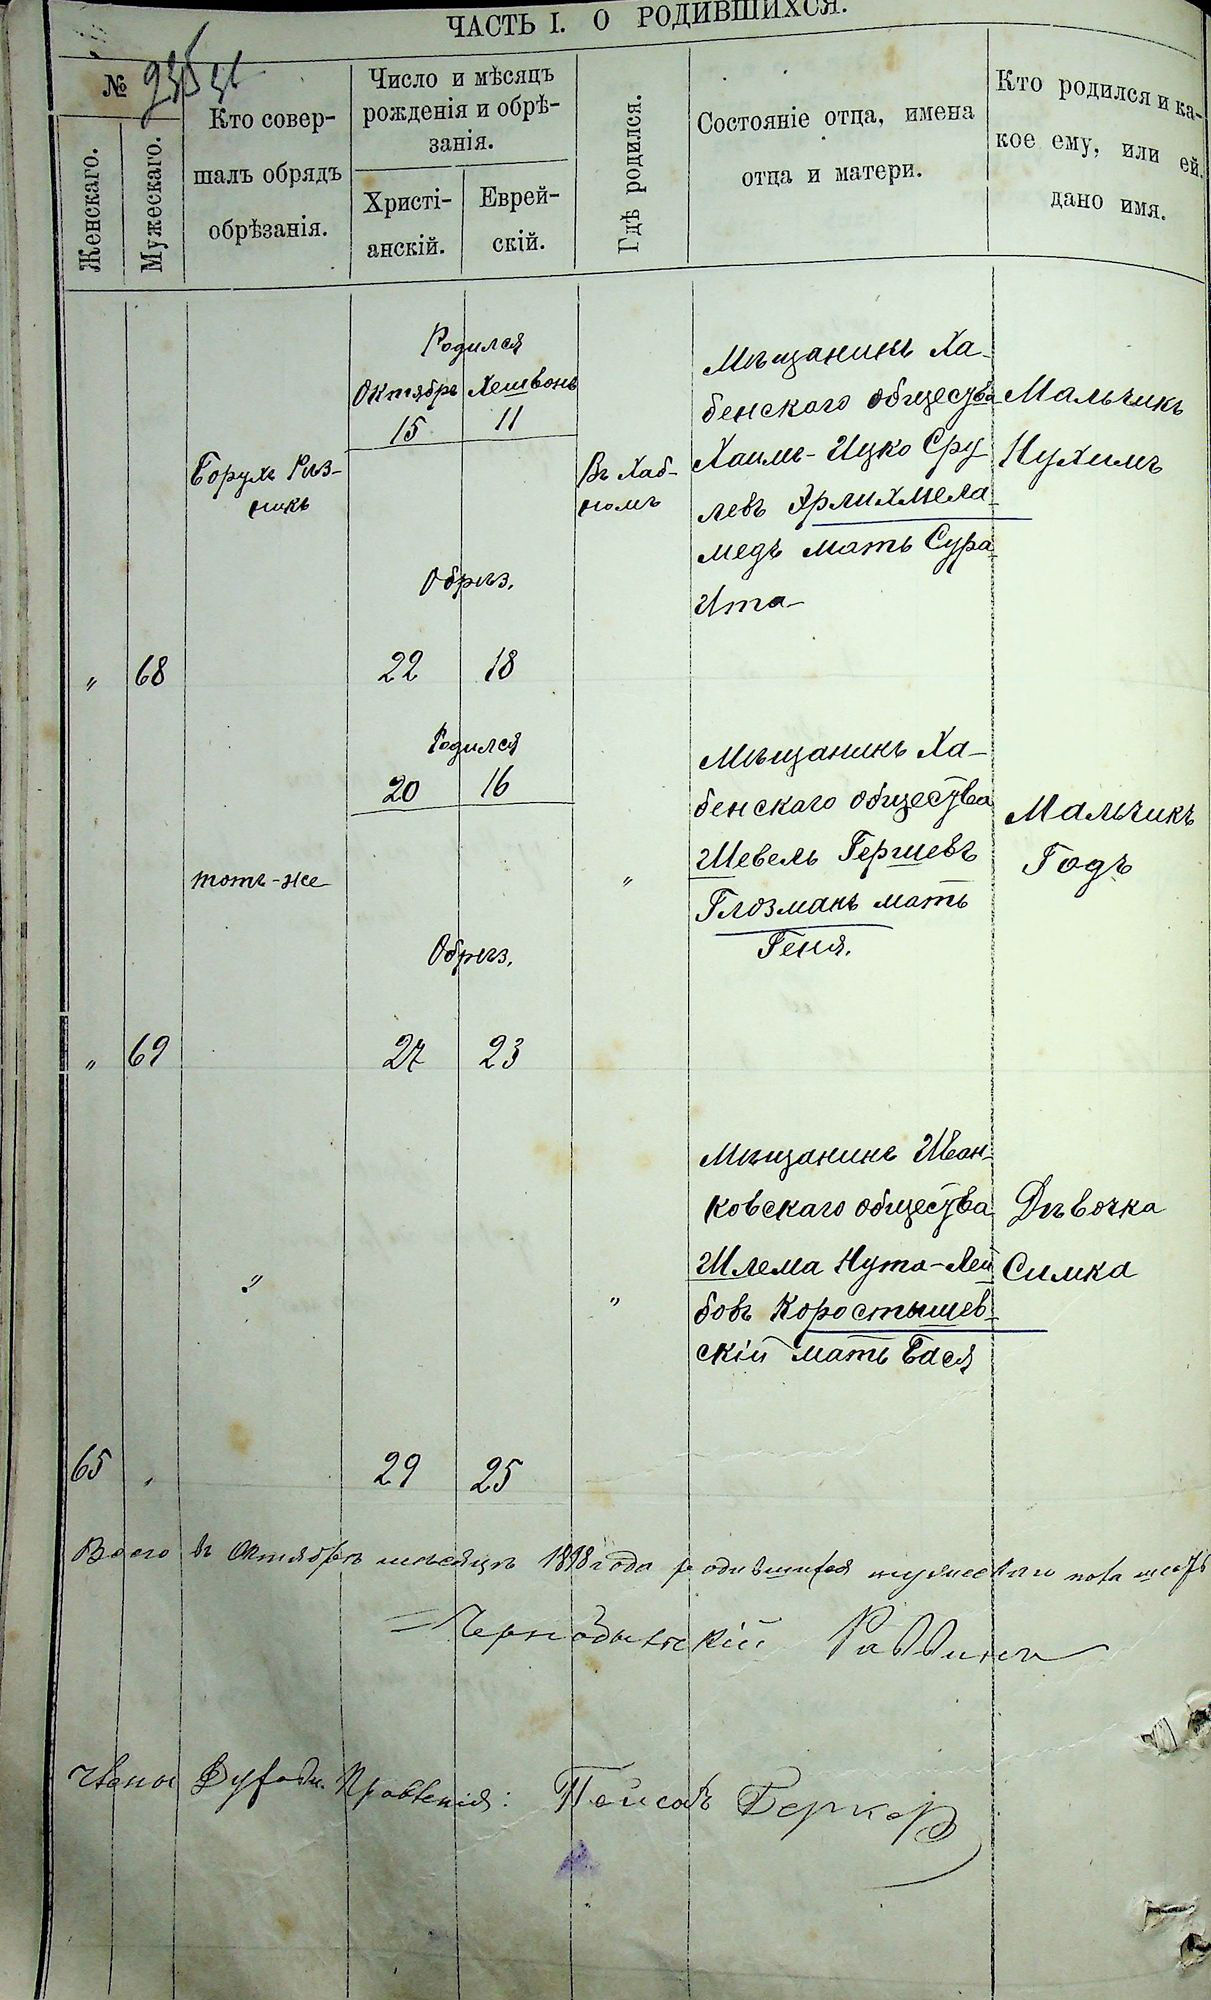 ЧАСТЬ I. О РОДИВШИХСЯ.
№
Женскаго.
Мужескаго.
Кто совер-
шалъ обрядъ
обрѣзанія.
Число и мѣсяцъ
рожденія и обрѣ-
занія.
Христі-
анскій.
Еврей-
скій.
Гдѣ родился.
Состояніе отца, имена
отца и матери.
Кто родился и ка-
кое ему, или ей
дано имя.
„ 68
Борухъ Рѣз-
никъ
Родился
Октябрь Хешвонъ
15 11
Обрѣз.
22 18
Въ Хаб-
номъ
Мѣщанинъ Ха-
бенскаго общества
Хаимъ-Ицко Сру
левъ Эрлихмела-
медъ мать Сура-
Ита-
Мальчикъ
Нухимъ
„ 69
тотъ-же
Родился
20 16
Обрѣз.
27 23
„
Мѣщанинъ Ха-
бенскаго общества
Шевель Гершевъ
Глозманъ мать
Геня.
Мальчикъ
Годъ
65 „
„
29 25
„
Мѣщанинъ Иван-
ковскаго общества
Шлема Нута-Лей
бовъ Коростышев-
скій мать Бася
Дѣвочка
Симка
Всего въ Октябрѣ мѣсяцѣ 1898 года родившихся мужескаго пола шесть
Раввинъ
Члены Духовн. Правленія: Пейсах Беркер